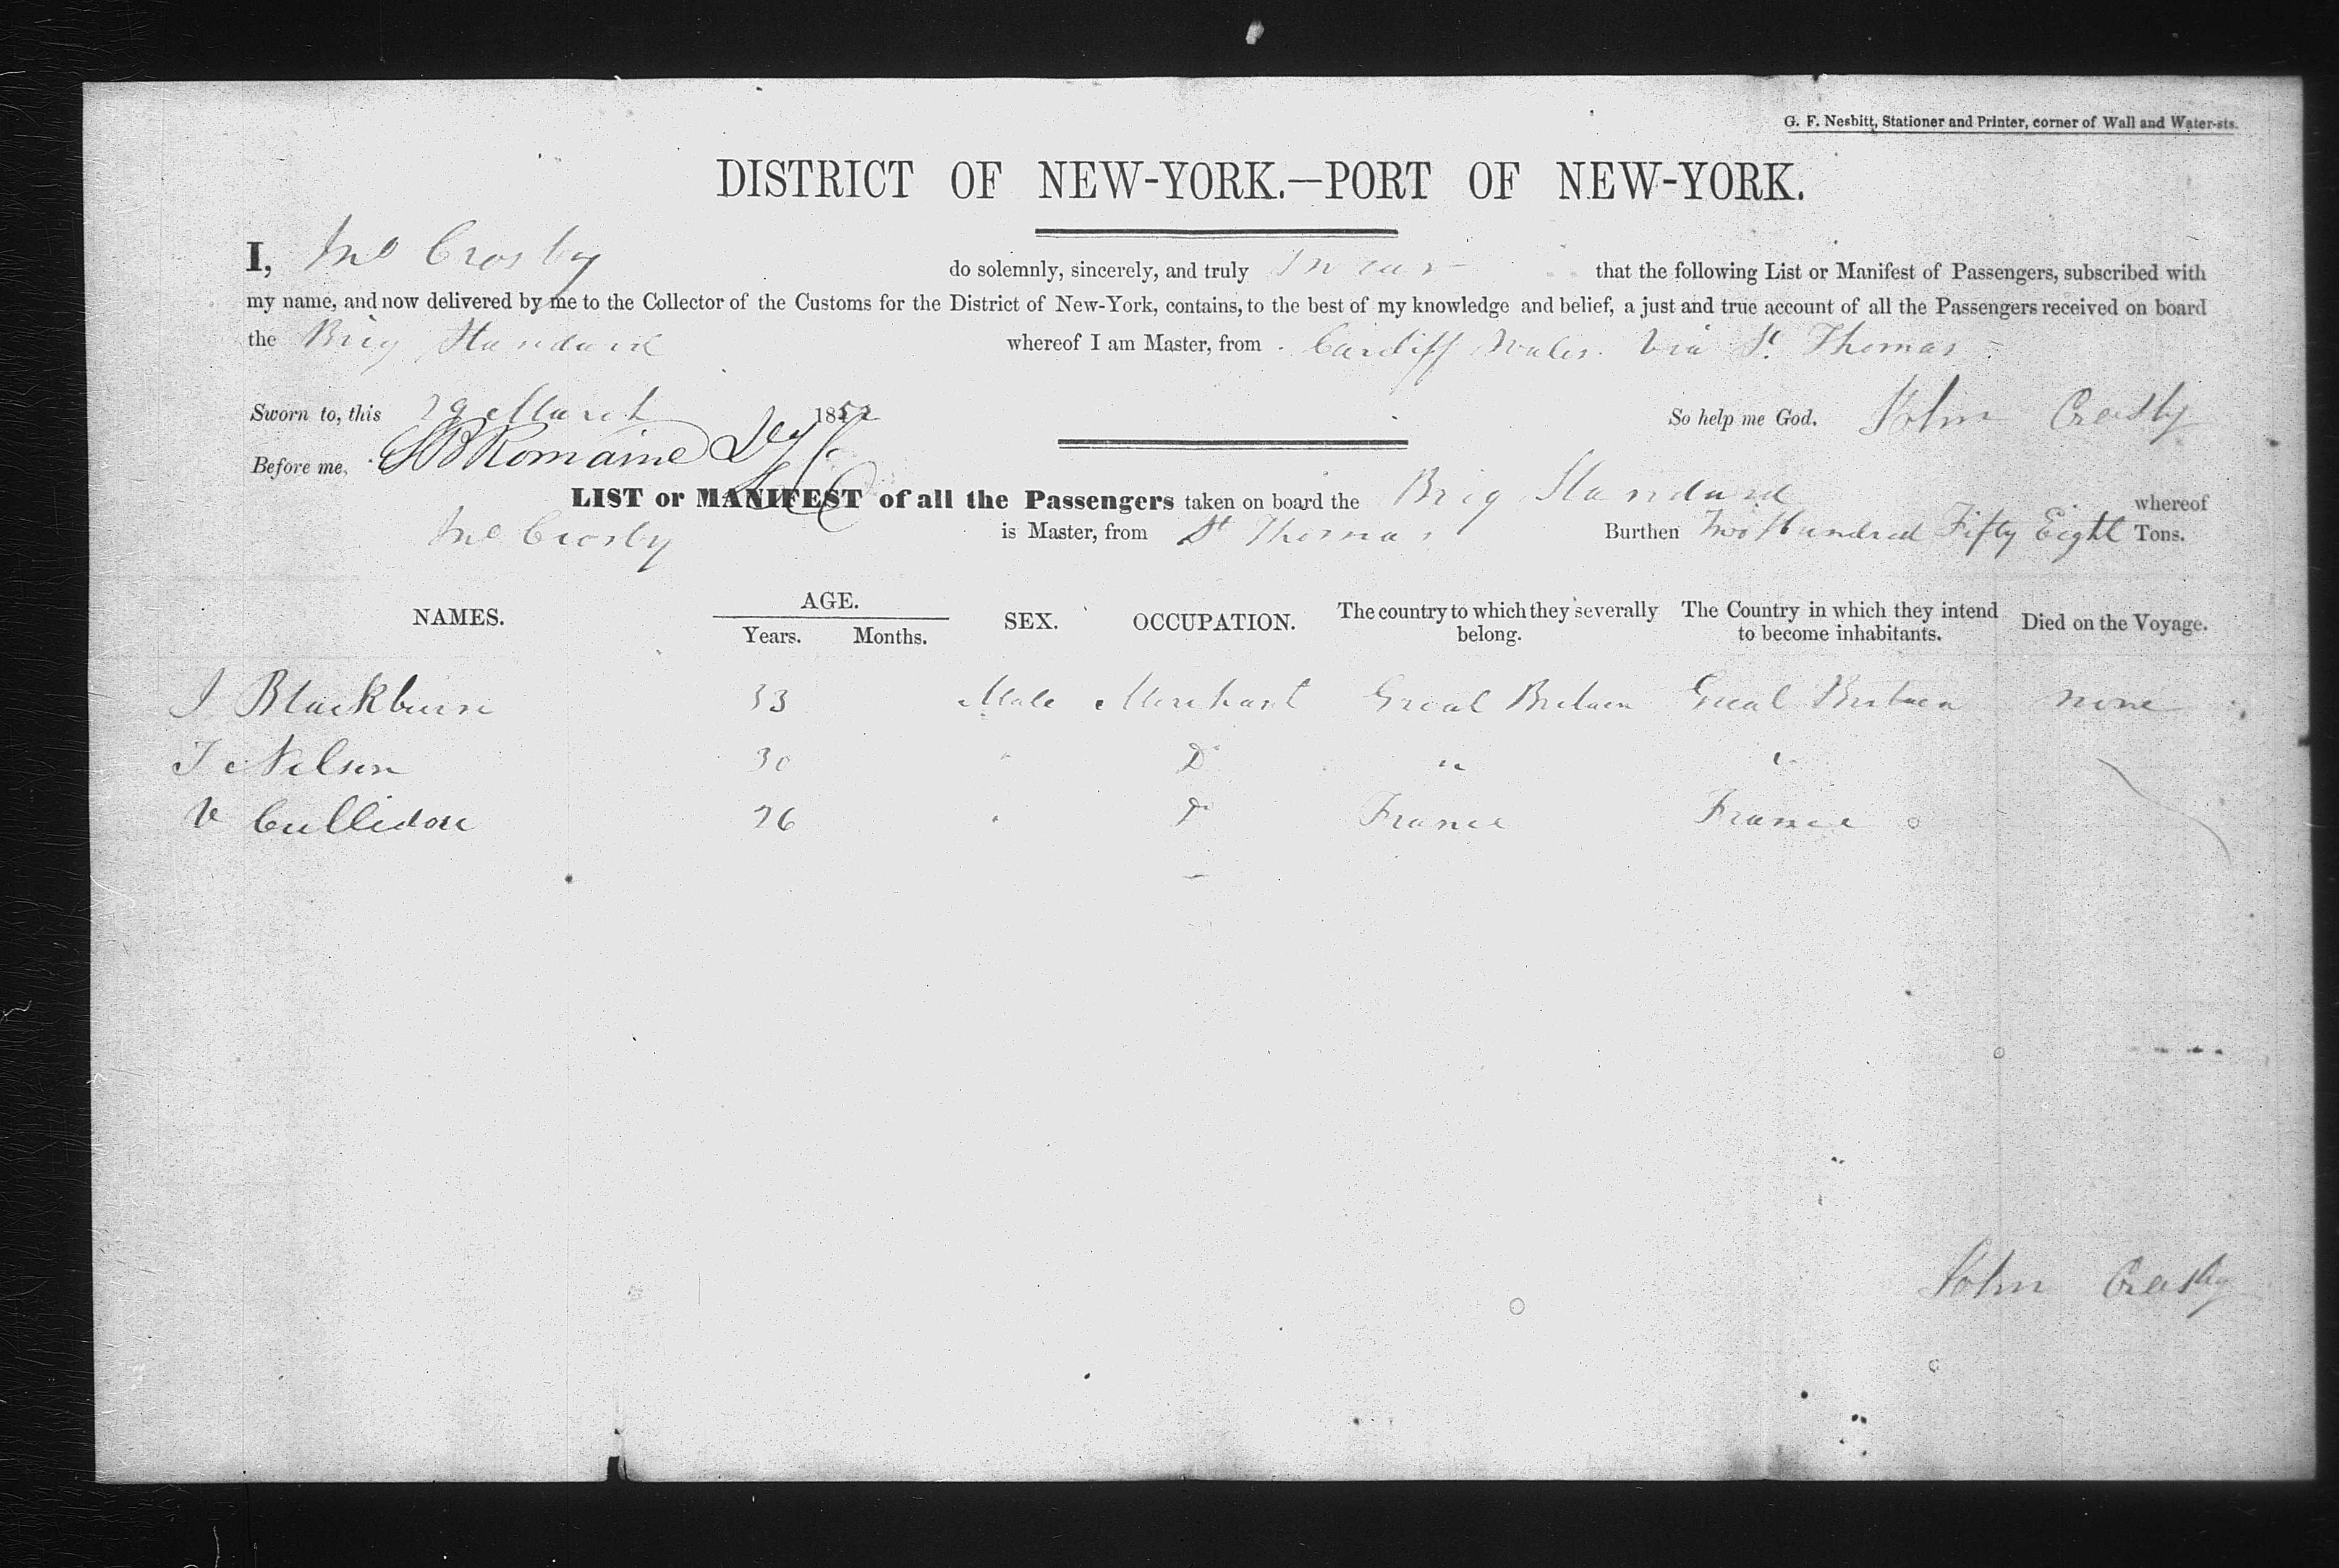 G. F. Nesbitt, Stationer and Printer, corner of Wall and Water-sts.
DISTRICT OF NEW-YORK.—PORT OF NEW-YORK.
I, Jno Crosby do solemnly, sincerely, and truly Swear that the following List or Manifest of Passengers, subscribed with
my name, and now delivered by me to the Collector of the Customs for the District of New-York, contains, to the best of my knowledge and belief, a just and true account of all the Passengers received on board
the Brig Standard whereof I am Master, from Cardiff Wales. Via St. Thomas
Sworn to, this 29 March 1852 So help me God. John Crosby
Before me, Romaine
LIST or MANIFEST of all the Passengers taken on board the Brig Standard whereof
Jno Crosby is Master, from St Thomas Burthen Two Hundred Fifty Eight Tons.
NAMES. AGE. Years. Months. SEX. OCCUPATION. The country to which they severally belong. The Country in which they intend to become inhabitants. Died on the Voyage.
J Blackburn 33 Male Merchant Great Britain Great Britain none
T Nelson 30 " Do " "
V 26 " Do France France
John Crosby